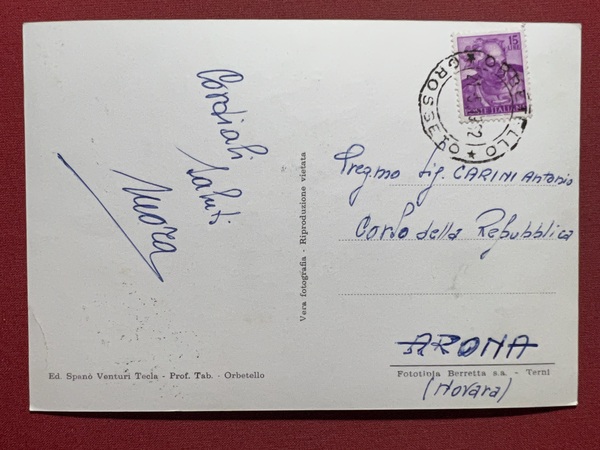 Cordiali
Saluti
15
LIRE
POSTE ITALIANE
ORBETELLO
GROSSETO
Pregmo Sig. CARINI Antonio
Corso della Repubblica
ARONA
(Novara)
Vera fotografia - Riproduzione vietata
Ed. Spanò Venturi Tecla - Prof. Tab. - Orbetello
Fototipia Berretta s.a. - Terni